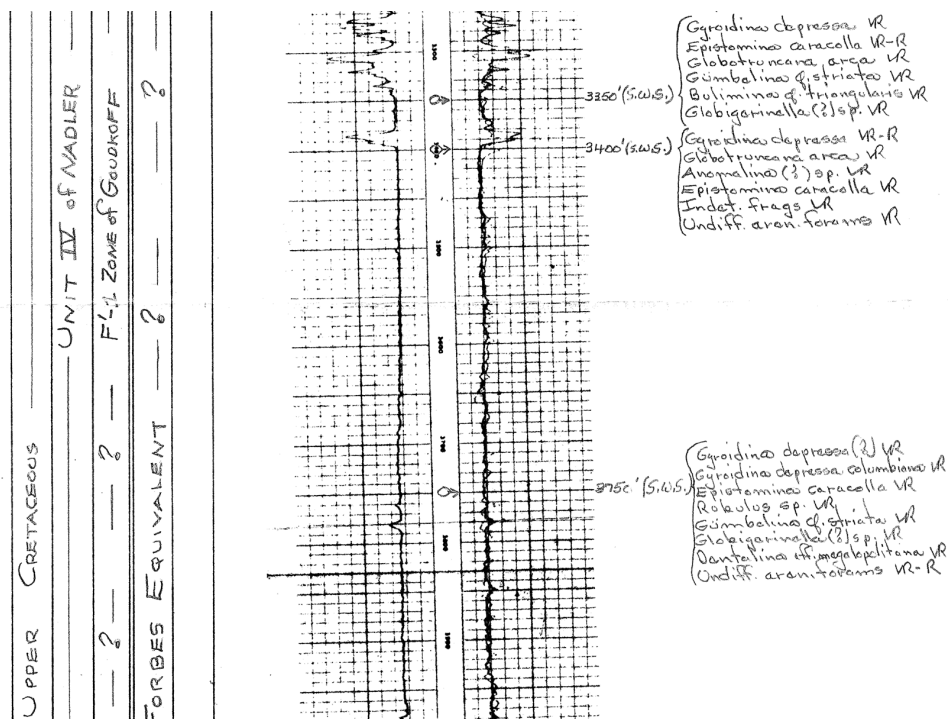 UPPER CRETACEOUS
UNIT IV of NADLER
? ? F'-L ZONE of GOUDKOFF
FORBES EQUIVALENT ? ?
3350' (S.W.S.)
Gyroidina depressa VR
Epistomina caracolla VR-R
Globotruncana arca VR
Gümbelina cf. striata VR
Bulimina cf. triangularis VR
Globigerinella (?) sp. VR
3400' (S.W.S.)
Gyroidina depressa VR-R
Globotruncana arca VR
Anomalina (?) sp. VR
Epistomina caracolla VR
Indet. frags VR
Undiff. aren. forams VR
3750' (S.W.S.)
Gyroidina depressa (?) VR
Gyroidina depressa columbiana VR
Epistomina caracolla VR
Robulus sp. VR
Gümbelina cf. striata VR
Globigerinella (?) sp. VR
Dentalina aff. megalopolitana VR
Undiff. aren. forams VR-R